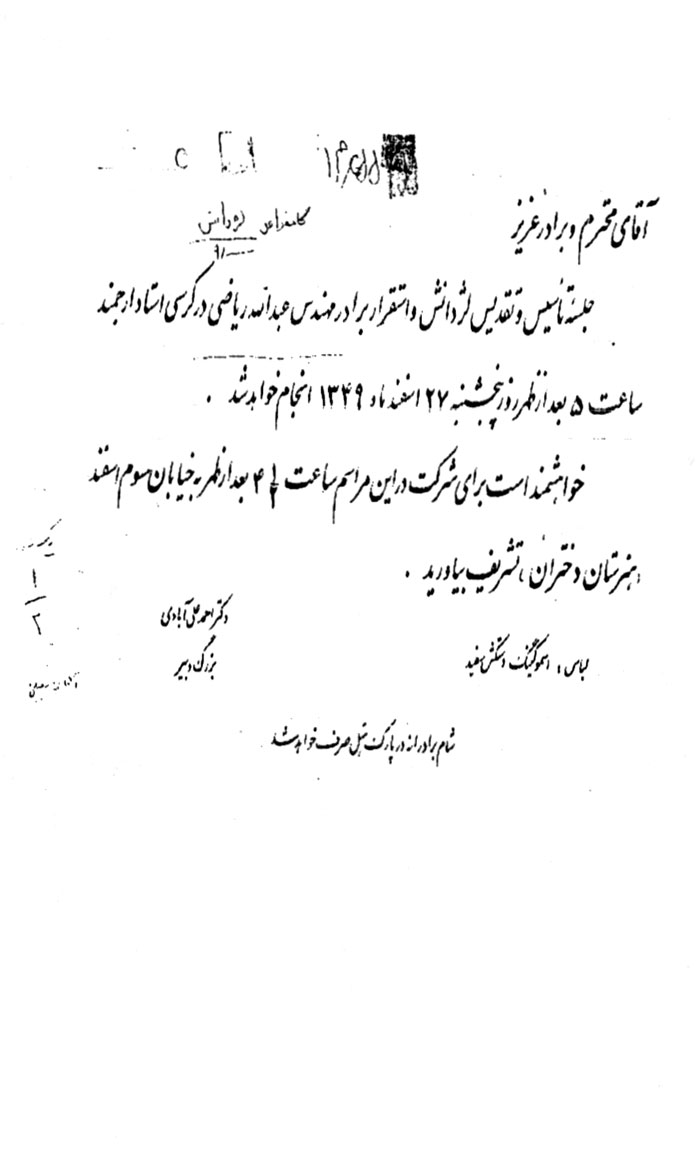 آقای محترم و برادر عزیز
جلسه تأسیس و تقدیس لژ دانش و استقرار برادر مهندس عبدالله ریاضی در کرسی استاد ارجمند
ساعت ۵ بعد از ظهر روز پنجشنبه ۲۷ اسفند ماه ۱۳۴۹ انجام خواهد شد .
خواهشمند است برای شرکت در این مراسم ساعت ۴ بعد از ظهر به خیابان سوم اسفند
هنرستان دختران ، تشریف بیاورید .
دکتر احمد علی آبادی
بزرگ دبیر
لباس : اسموکینگ دستکش سفید
شام برادرانه در پارک هتل صرف خواهد شد
۱
۲